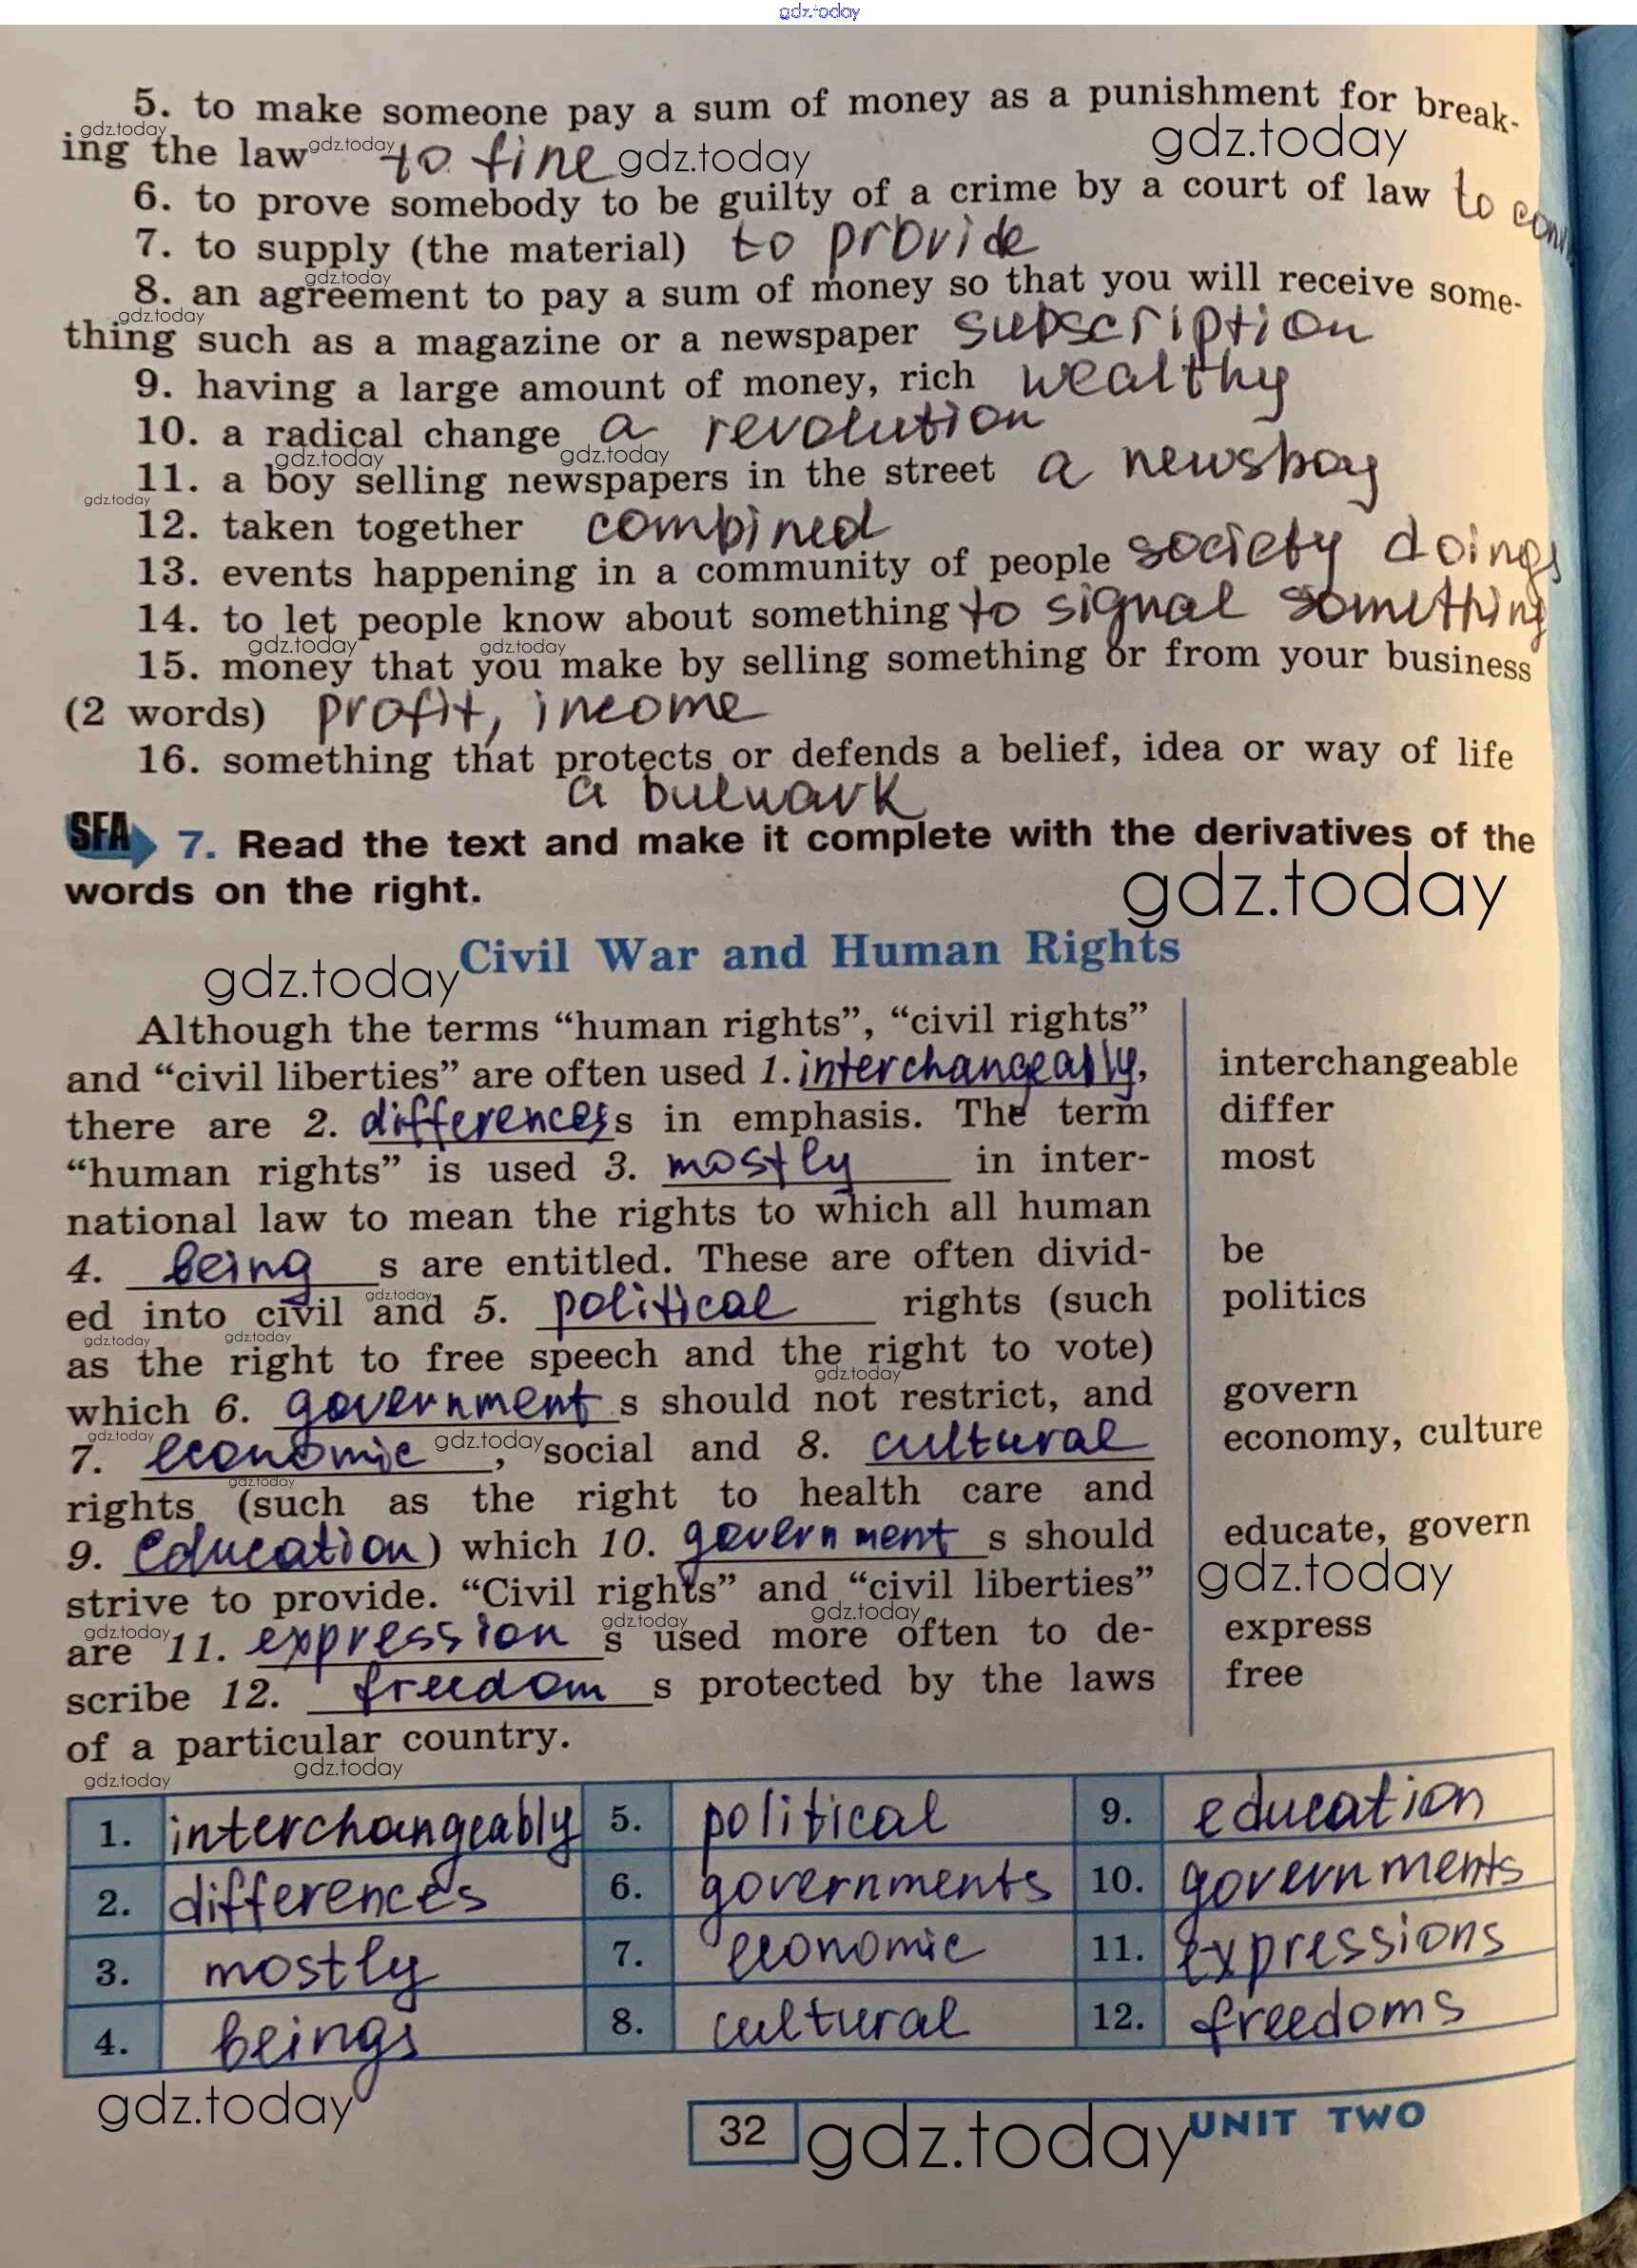 gdz.today
5. to make someone pay a sum of money as a punishment for break-
gdz.today
ing the law gdz.today to fine gdz.today gdz.today
6. to prove somebody to be guilty of a crime by a court of law to
7. to supply (the material) to provide
gdz.today
8. an agreement to pay a sum of money so that you will receive some-
gdz.today
thing such as a magazine or a newspaper subscription
9. having a large amount of money, rich wealthy
10. a radical change a revolution
gdz.today gdz.today
11. a boy selling newspapers in the street a newsboy
gdz.today
12. taken together combined
13. events happening in a community of people society doings
14. to let people know about something to signal something
gdz.today gdz.today
15. money that you make by selling something or from your business
(2 words) profit, income
16. something that protects or defends a belief, idea or way of life
a bulwark
SFA 7. Read the text and make it complete with the derivatives of the
words on the right.
gdz.today
gdz.today Civil War and Human Rights
Although the terms “human rights”, “civil rights”
and “civil liberties” are often used 1. interchangeably, interchangeable
there are 2. differences s in emphasis. The term differ
“human rights” is used 3. mostly in inter- most
national law to mean the rights to which all human
4. being s are entitled. These are often divid- be
gdz.today
ed into civil and 5. political rights (such politics
gdz.today gdz.today
as the right to free speech and the right to vote)
gdz.today
which 6. government s should not restrict, and govern
gdz.today
7. economic gdz.today, social and 8. cultural economy, culture
gdz.today
rights (such as the right to health care and
9. education) which 10. government s should educate, govern
gdz.today
strive to provide. “Civil rights” and “civil liberties”
gdz.today gdz.today gdz.today
are 11. expression s used more often to de- express
scribe 12. freedom s protected by the laws free
of a particular country.
gdz.today gdz.today
1. interchangeably 5. political 9. education
2. differences 6. governments 10. governments
3. mostly 7. economic 11. expressions
4. beings 8. cultural 12. freedoms
gdz.today
32 gdz.today UNIT TWO